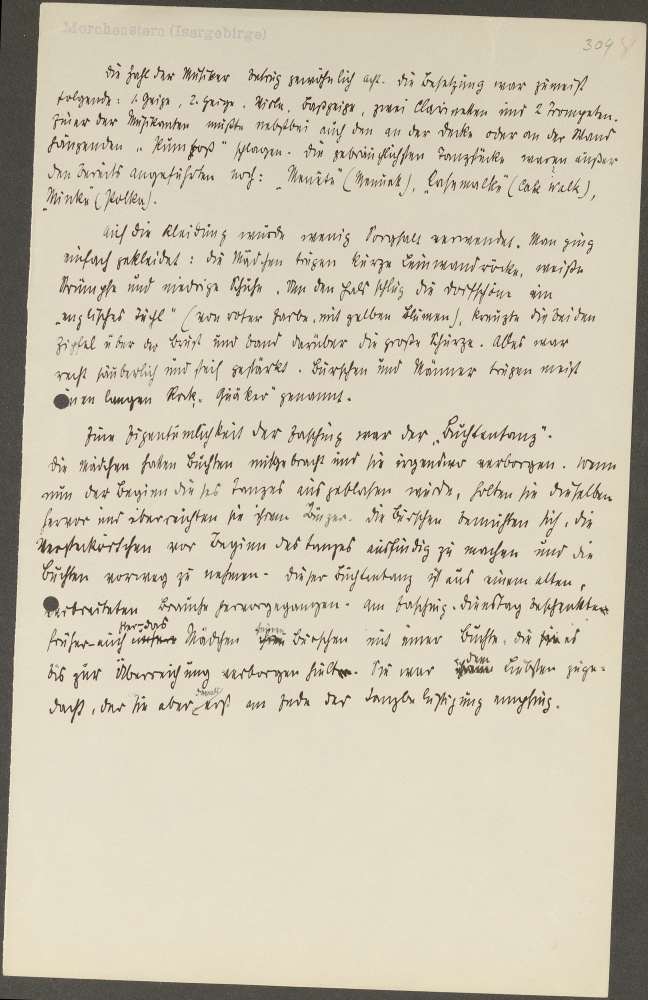 Morchenstern (Isergebirge)
309
Die Zahl der Musiker betrug gewöhnlich acht. Die Besetzung war zumeist
folgende: 1. Geige, 2. Geige, Viola, Baßgeige, zwei Clarineten und 2 Trompeten.
Einer der Musikanten mußte nebstbei auch den an der Decke oder an der Wand
hängenden "Pumpoß" schlagen. Die gebräuchlichsten Tanzstücke waren außer
den bereits angeführten noch: "Menuto" (Menuet), (Cake Walk),
"Minka" (Polka).
Auf die Kleidung wurde wenig Sorgfalt verwendet. Man ging
einfach gekleidet: die Mädchen trugen kurze Leinwandröcke, weiße
Strümpfe und niedrige Schuhe. Um den Hals schlug die Dorfschöne ein
"englisches Tüchl" (von roter Farbe, mit gelben Blumen), kreuzte die beiden
Zipfel über der Brust und band darüber die große Schürze. Alles war
recht säuberlich und steif gestärkt. Burschen und Männer trugen meist
einen langen Rock, "Quäker" genannt.
Eine Eigentümlichkeit der Fasching war der "Buchtentanz".
Die Mädchen hatten Buchten mitgebracht und sie irgendwo verborgen. Wenn
nun der Beginn dieses Tanzes ausgeblasen wurde, holten sie dieselben
hervor und überreichten sie ihrem Tänzer. Die Burschen bemühten sich, die
vor Beginn des Tanzes ausfindig zu machen und die
Buchten vorweg zu nehmen. Dieser Buchtentanz ist aus einem alten,
verbreiteten Brauche hervorgegangen. Am Faschingdienstag beschenkte
früher auch das Mädchen seinen Burschen mit einer Buchte, die es
bis zur Überreichung verborgen hielt. Sie war dem Liebsten zuge-
dacht, der sie aber erst am Ende der Tanzbelustigung empfing.